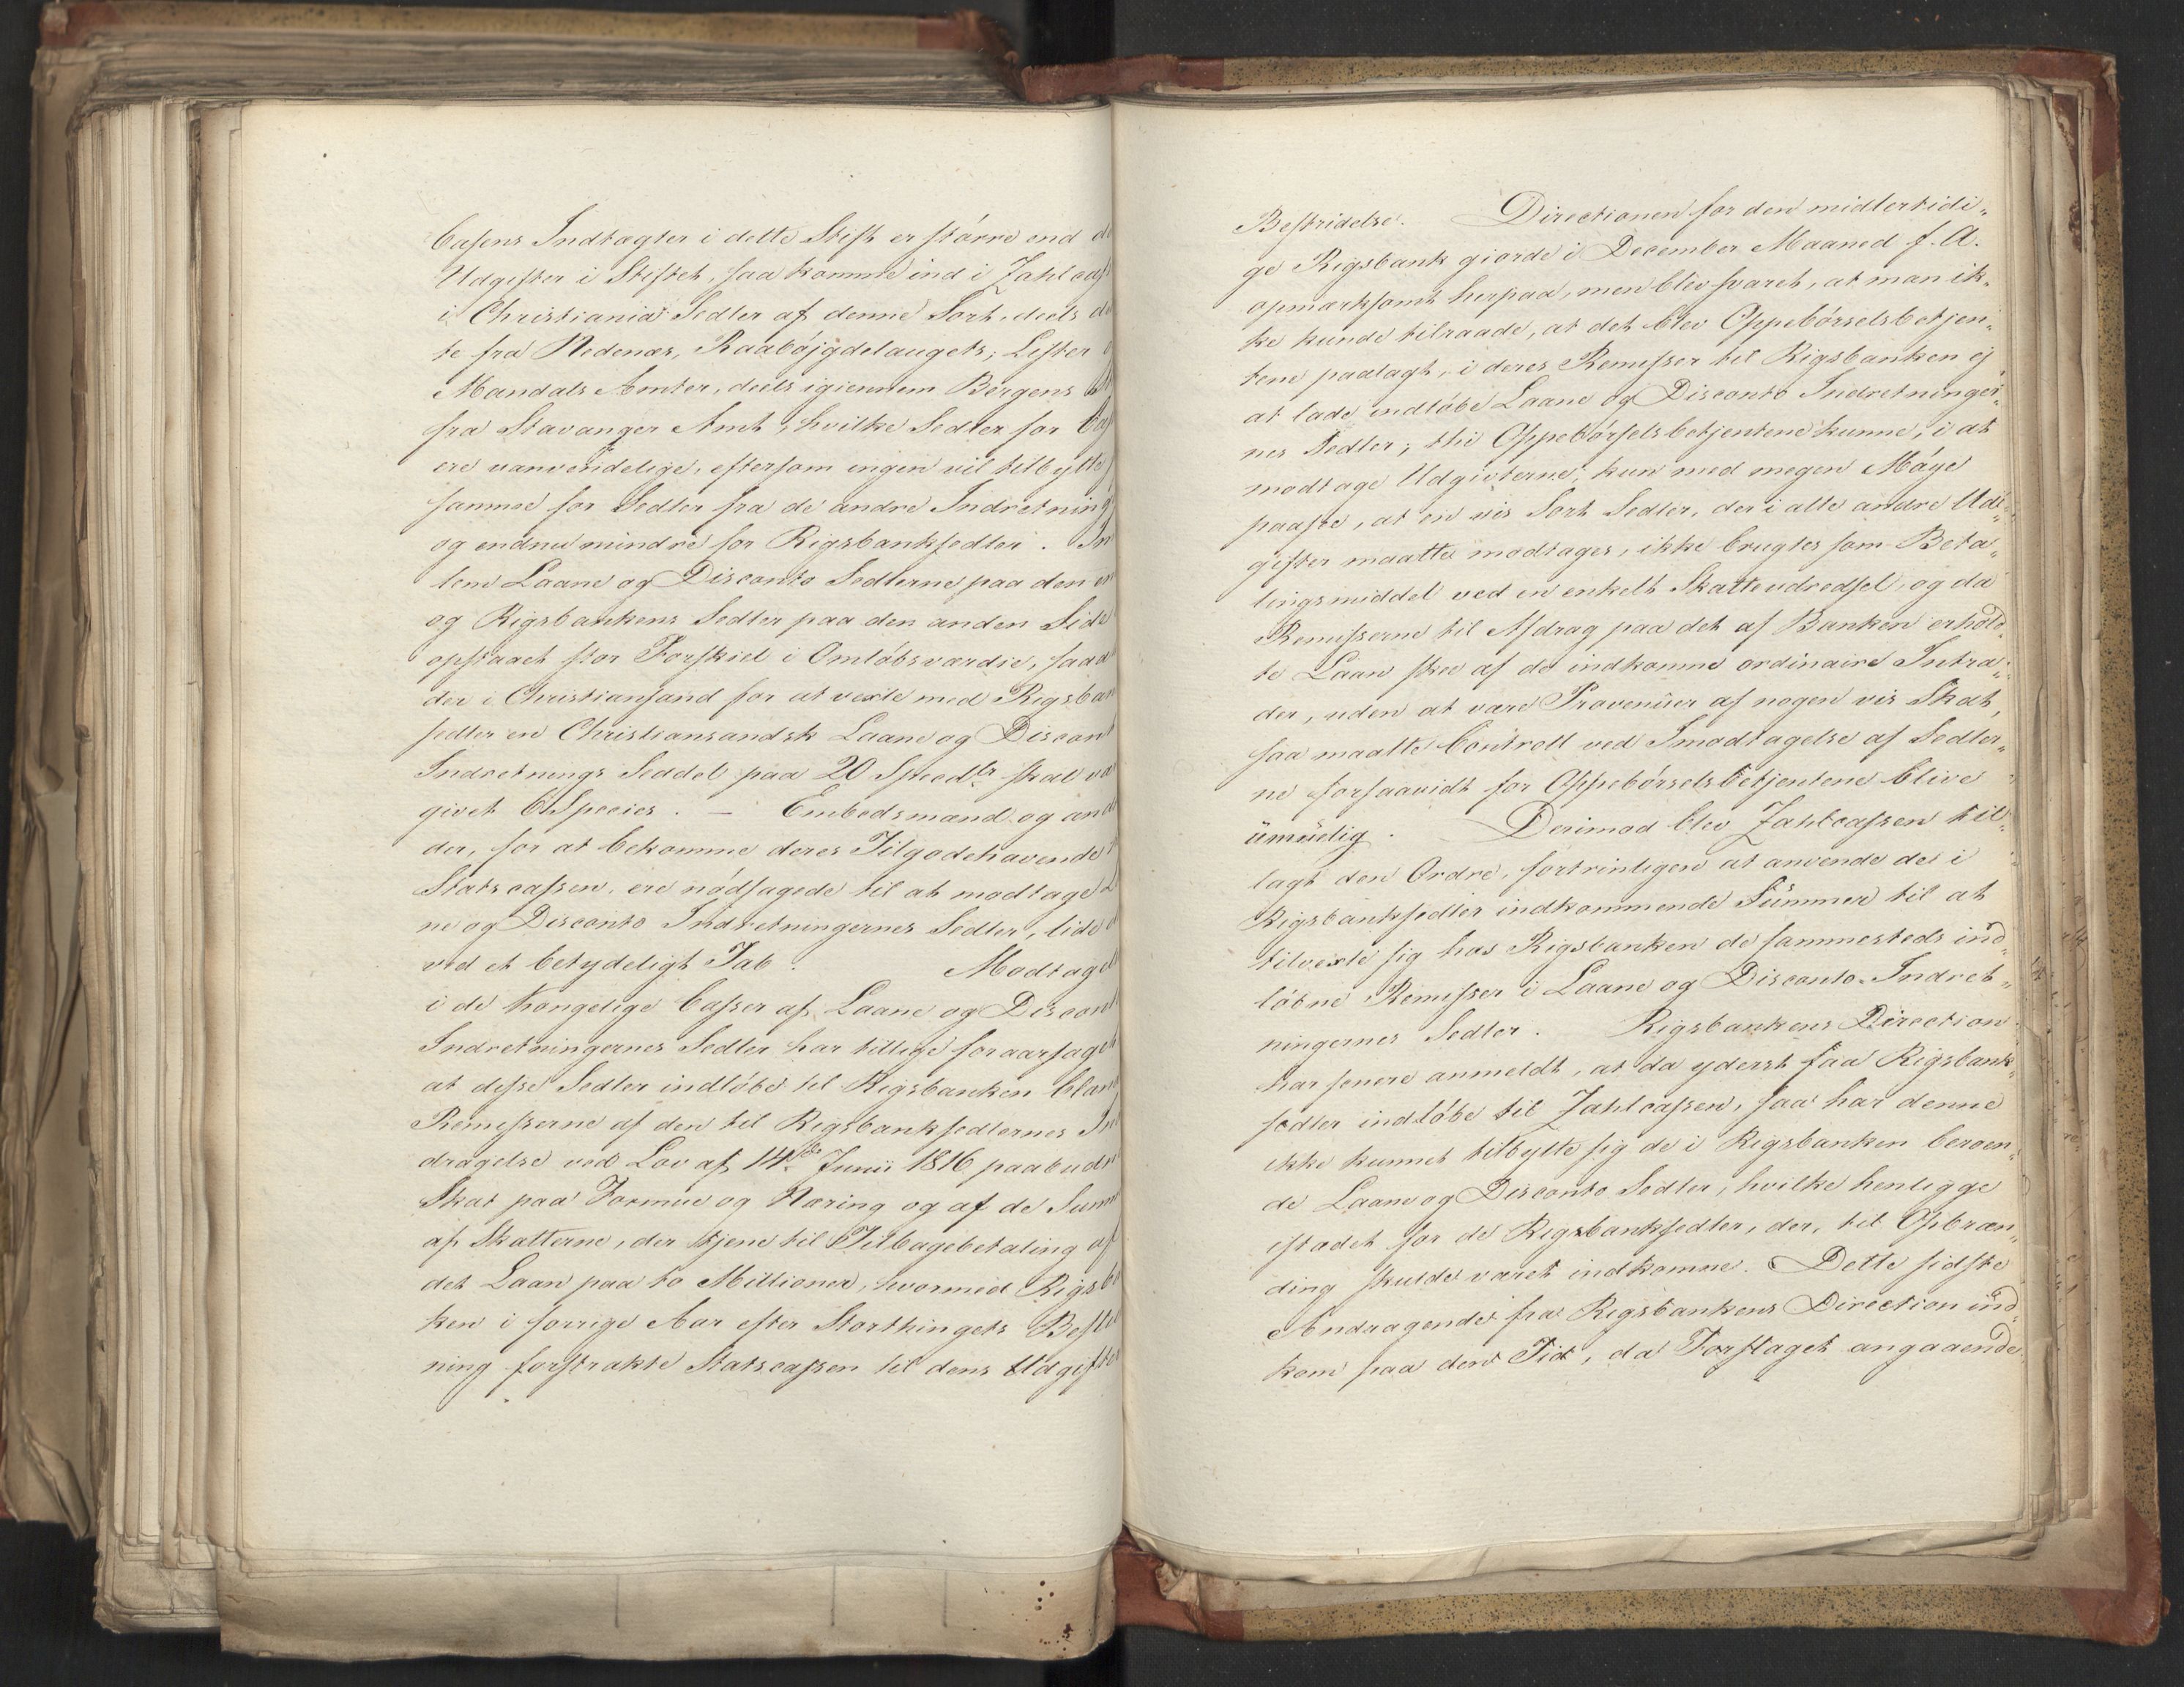 Cassens Indtægter i dette Stift er større end de
Udgifter i Stiftet, saa komme ind i Zahlcass
i Christiania Sedler af denne Sort, deels de
te fra Nedenæs, Raabøjgdelaugets, Lister
Mandals Amter, deels igiennem Bergens
fra Stavanger Amt, hvilke Sedler for Cas
ere uanvendelige, eftersom ingen vil tilbytte
samme for Sedler fra de andre Indretning
og endnu mindre for Rigsbanksedler. Im
lem Laane og Disconto Sedlerne paa den en
og Rigsbankens Sedler paa den anden Side
opstaaet stor Forskiel i Omløbsværdie, saa
der i Christiansand for at vexle med Rigsban
sedler en Christiansandsk Laane og Discont
Indretnings Seddel paa 20 Speedlr skal væ
givet 6 Species. – Embedsmænd og and
der, for at bekomme deres Tilgodehavende
Statscassen, ere nødsagede til at modtage
ne og Disconto Indretningernes Sedler, lide
ved et betydeligt Tab. Modtagel
i de kongelige Casser af Laane og Discont
Indretningernes Sedler har tillige foraarsaget
at disse Sedler indløbe til Rigsbanken bland
Remisserne af den til Rigsbanksedlernes In
dragelse ved Lov af 14de Junii 1816 paabudne
Skat paa Formue og Næring og af de Summ
af Skatterne, der tjene til Tilbagebetaling af
det Laan paa to Millioner, hvormed Rigsba
ken i forrige Aar efter Storthingets Bestem
ning forstrakte Statscassen til dens Udgifter
Bestridelse. Directionen for den midlertidi„
ge Rigsbank giorde i December Maaned f. A.
opmærksomt herpaa, men blev svaret, at man ik„
ke kunde tilraade, at det blev Oppebørselsbetjen„
tene paalagt, i deres Remisser til Rigsbanken ej
at lade indløbe Laane og Disconto Indretninger„
nes Sedler; thi Oppebørselsbetjentene kunne, i at
modtage Udgivterne, kun med megen Møye
paasee, at en vis Sort Sedler, der i alle andre Ud„
gifter maatte modtages, ikke brugtes som Beta„
lingsmiddel ved en enkelt Skatteudredsel, og da
Remisserne til Afdrag paa det af Banken erhold„
te Laan skee af de indkomne ordinaire Intra„
der, uden at være Provenüer af nogen vis Skat,
saa maatte Controll ved Imodtagelse af Sedler„
ne forsaavidt for Oppebørselsbetjentene blive
umuelig. Derimod blev Zahlcassen til„
lagt den Ordre, fortrinligen at anvende de i
Rigsbanksedler indkommende Summer til at
tilvexle sig hos Rigsbanken de sammesteds ind„
løbne Remisser i Laane og Disconto-Indret„
ningernes Sedler. Rigsbankens Direction
har senere anmeldt, at da yderst faa Rigsbank„
sedler indløbe til Zahlcassen, saa har denne
ikke kunnet tilbytte sig de i Rigsbanken beroen„
de Laane og Disconto Sedler, hvilke henligge
istædet for de Rigsbanksedler, der, til Opbræn„
ding skulde været indkomne. Dette sidste
Andragende fra Rigsbankens Direction ind„
kom paa den Tid, da Forslaget angaaende